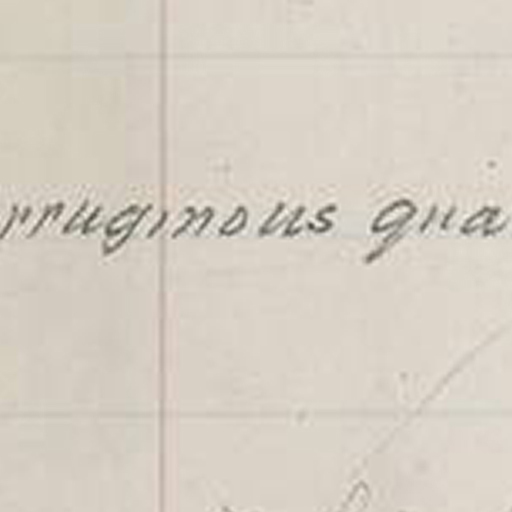 rruginous qua